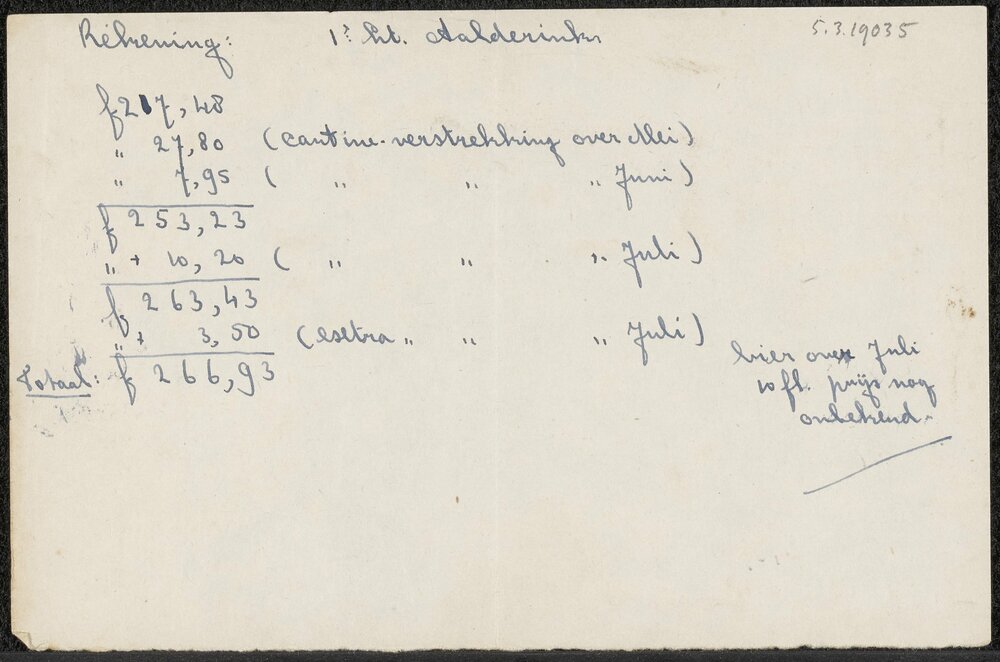 Rekening: 1e Lt. Aalderink 5.3.19035
f 217,48
„ 27,80 (cantine-verstrekking over Mei)
„ 7,95 ( „ „ „ Juni)
f 253,23
„ + 10,20 ( „ „ „ Juli)
f 263,43
„ + 3,50 (extra „ „ „ Juli)
Totaal: f 266,93
bier over Juli
10 fl. prijs nog
onbekend.